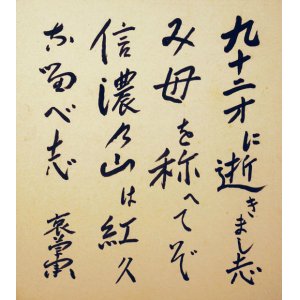 九十二才に逝きまし志
み母を称へてぞ
信濃乃山は紅久
なるべ志
哀草果